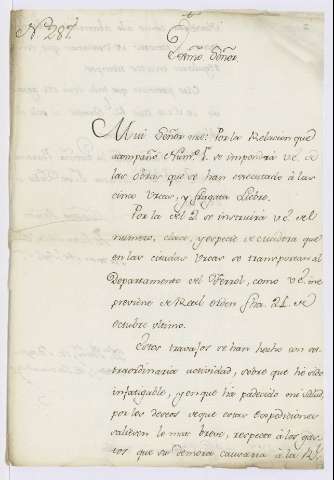 N.º 287
Exmo. Señor.
Mui Señor mio: Por la Relacion que
acompaño Num.º 1.º se impondrà V.E. de
las obras que se han executado à las
cinco Urcas, y fragata Liebre.
Por la del 2 se instruirà V.E. del
numero, clase, y especie de madera que
en las citadas Urcas se transportan al
Departamento del Ferrol, como V.E. me
previene de Real orden fha. 21 de
Octubre ultimo.
Estos trabajos se han hecho con ex-
traordinaria actividad, sobre que he sido
infatigable, y en que ha padecido mi salud,
por los deseos de que estas Expediciones
saliesen lo mas breve, respecto à los gas-
tos que su demora causaria à la R.l